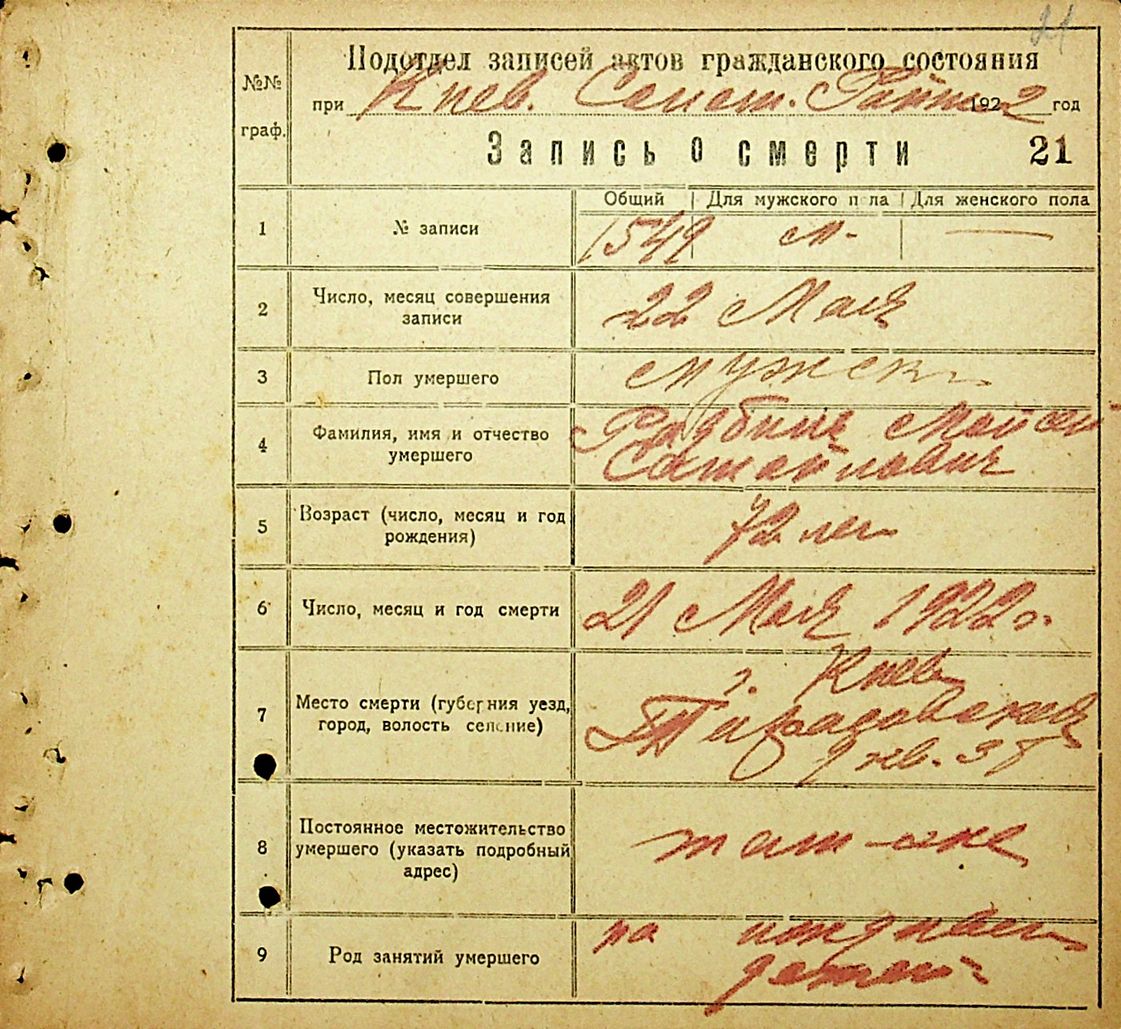 21
Подотдел записей актов гражданского состояния
№№ граф.
при Киев. 1922 год
Запись о смерти 21
Общий Для мужского пола Для женского пола
1 № записи 1549 м. —
2 Число, месяц совершения записи 22 Мая
3 Пол умершего мужск.
4 Фамилия, имя и отчество умершего Мойсей
5 Возраст (число, месяц и год рождения) 72 лет
6 Число, месяц и год смерти 21 Мая 1922 г.
7 Место смерти (губерния уезд, город, волость селение) г. Киев
9 кв. 37
8 Постоянное местожительство умершего (указать подробный адрес) там-же
9 Род занятий умершего на иждивен.
детей